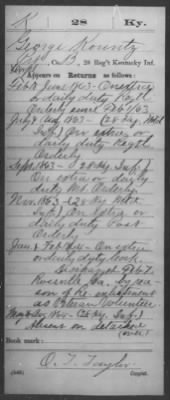 K 28 Ky.
George Kountz
Co. B, 28 Reg't Kentucky Inf.
Appears on Returns as follows:
Feb to June 1863 - On extra
or daily duty Regtl
Orderly since Feb 6/63
July & Aug 1863 - (28 Ky. Mtd
Inf.) On extra or
daily duty Regtl
Orderly
Sept. 1863 - (28 Ky. Inf.)
On extra or daily
duty Orderly
Nov. 1863 - (28 Ky. Mtd
Inf.) On extra or
daily duty Post
Orderly
Jan & Feb 1864 - On extra
or daily duty
Discharged Feb 7.
Rossville Ga. by rea-
son of re-enlistment
as Veteran Volunteer.
1864 - (28 Ky. Inf.)
Absent on detached
Book mark:
O. T. Taylor
(546) Copyist.